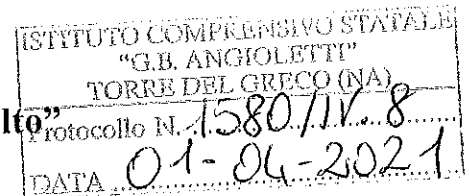 ISTITUTO COMPRENSIVO STATALE
"G.B. ANGIOLETTI"
TORRE DEL GRECO (NA)
lto"
Protocollo N. 1580/IV.8
DATA 01-04-2021